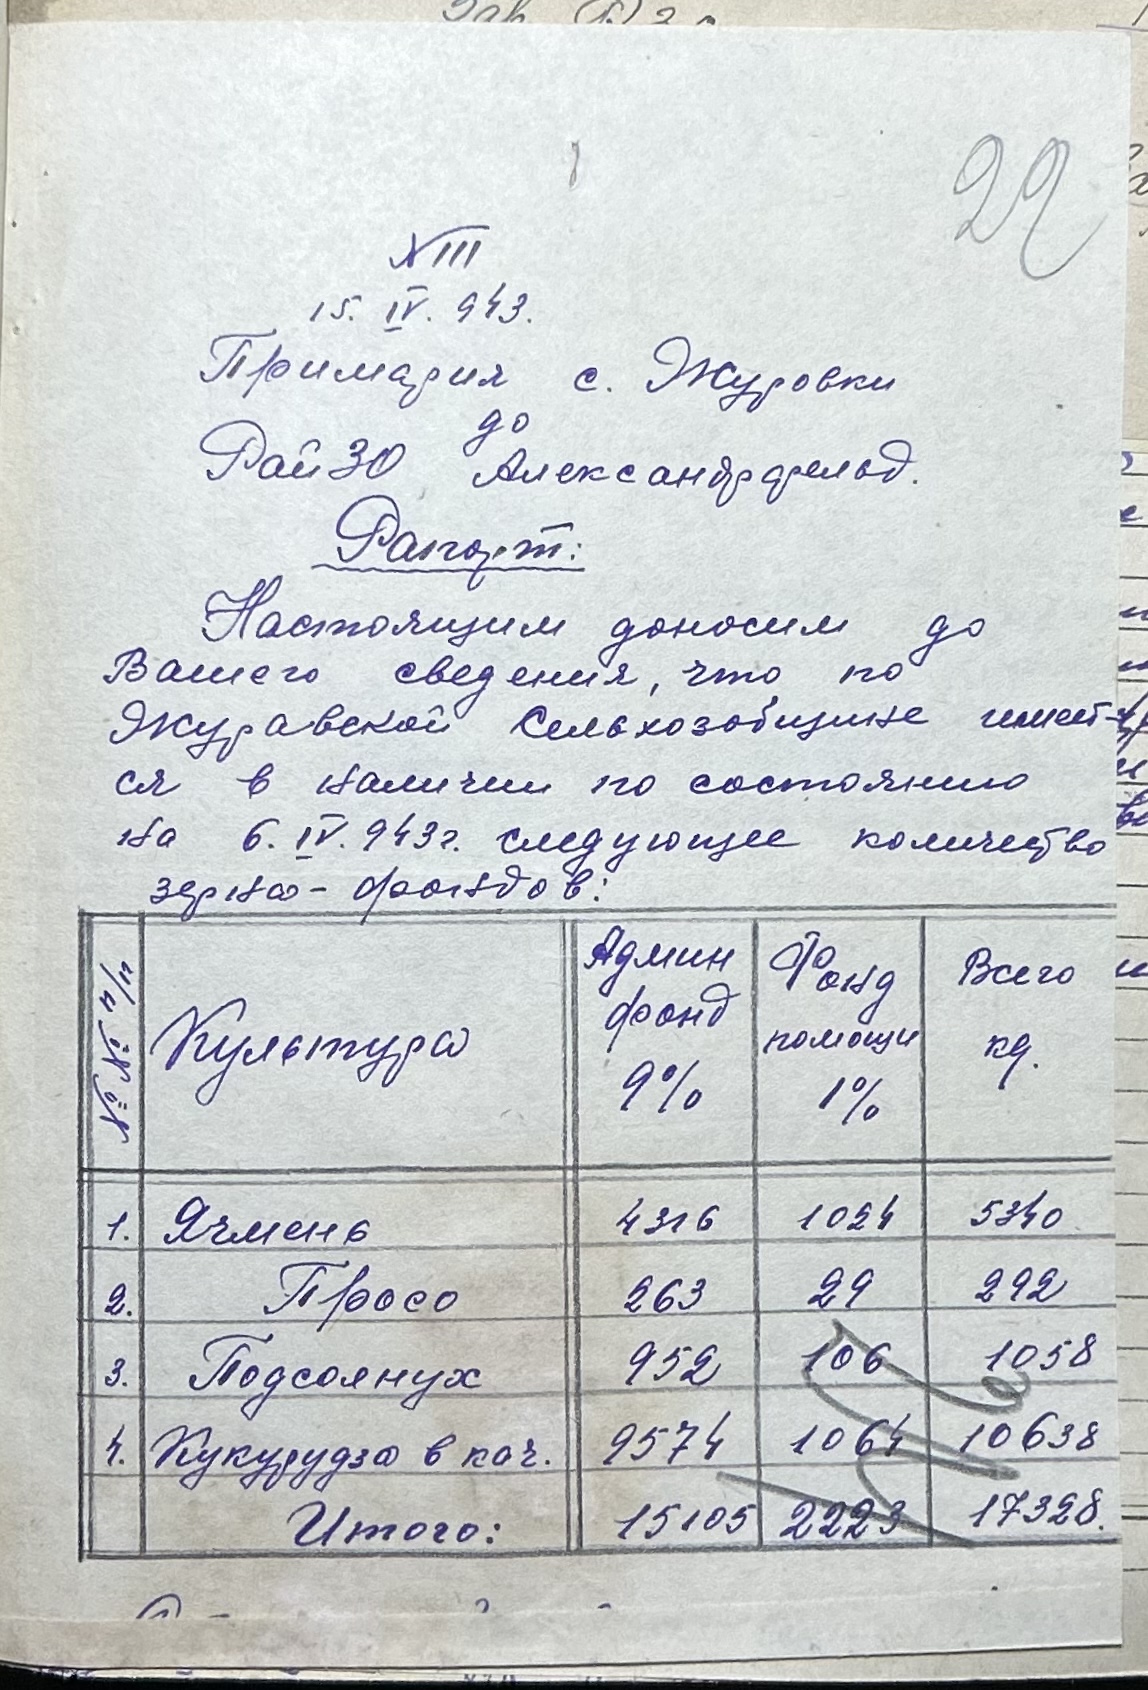 22
N III
15. IV. 943.
Примария с. Журовки
до
РайЗО Александрфельд.
Рапорт:
Настоящим доносим до
Вашего сведения, что по
Журавской Сельхозобщине имеет-
ся в наличии по состоянию
на 6. IV. 943г. следующее количество
зерно-фондов:
№ № п/п Культура Админ фонд 9% Фонд помощи 1% Всего кг.
1. Ячмень 4316 1024 5340
2. Просо 263 29 292
3. Подсолнух 952 106 1058
4. Кукурудза в кач. 9574 1064 10638
Итого: 15105 2223 17328.